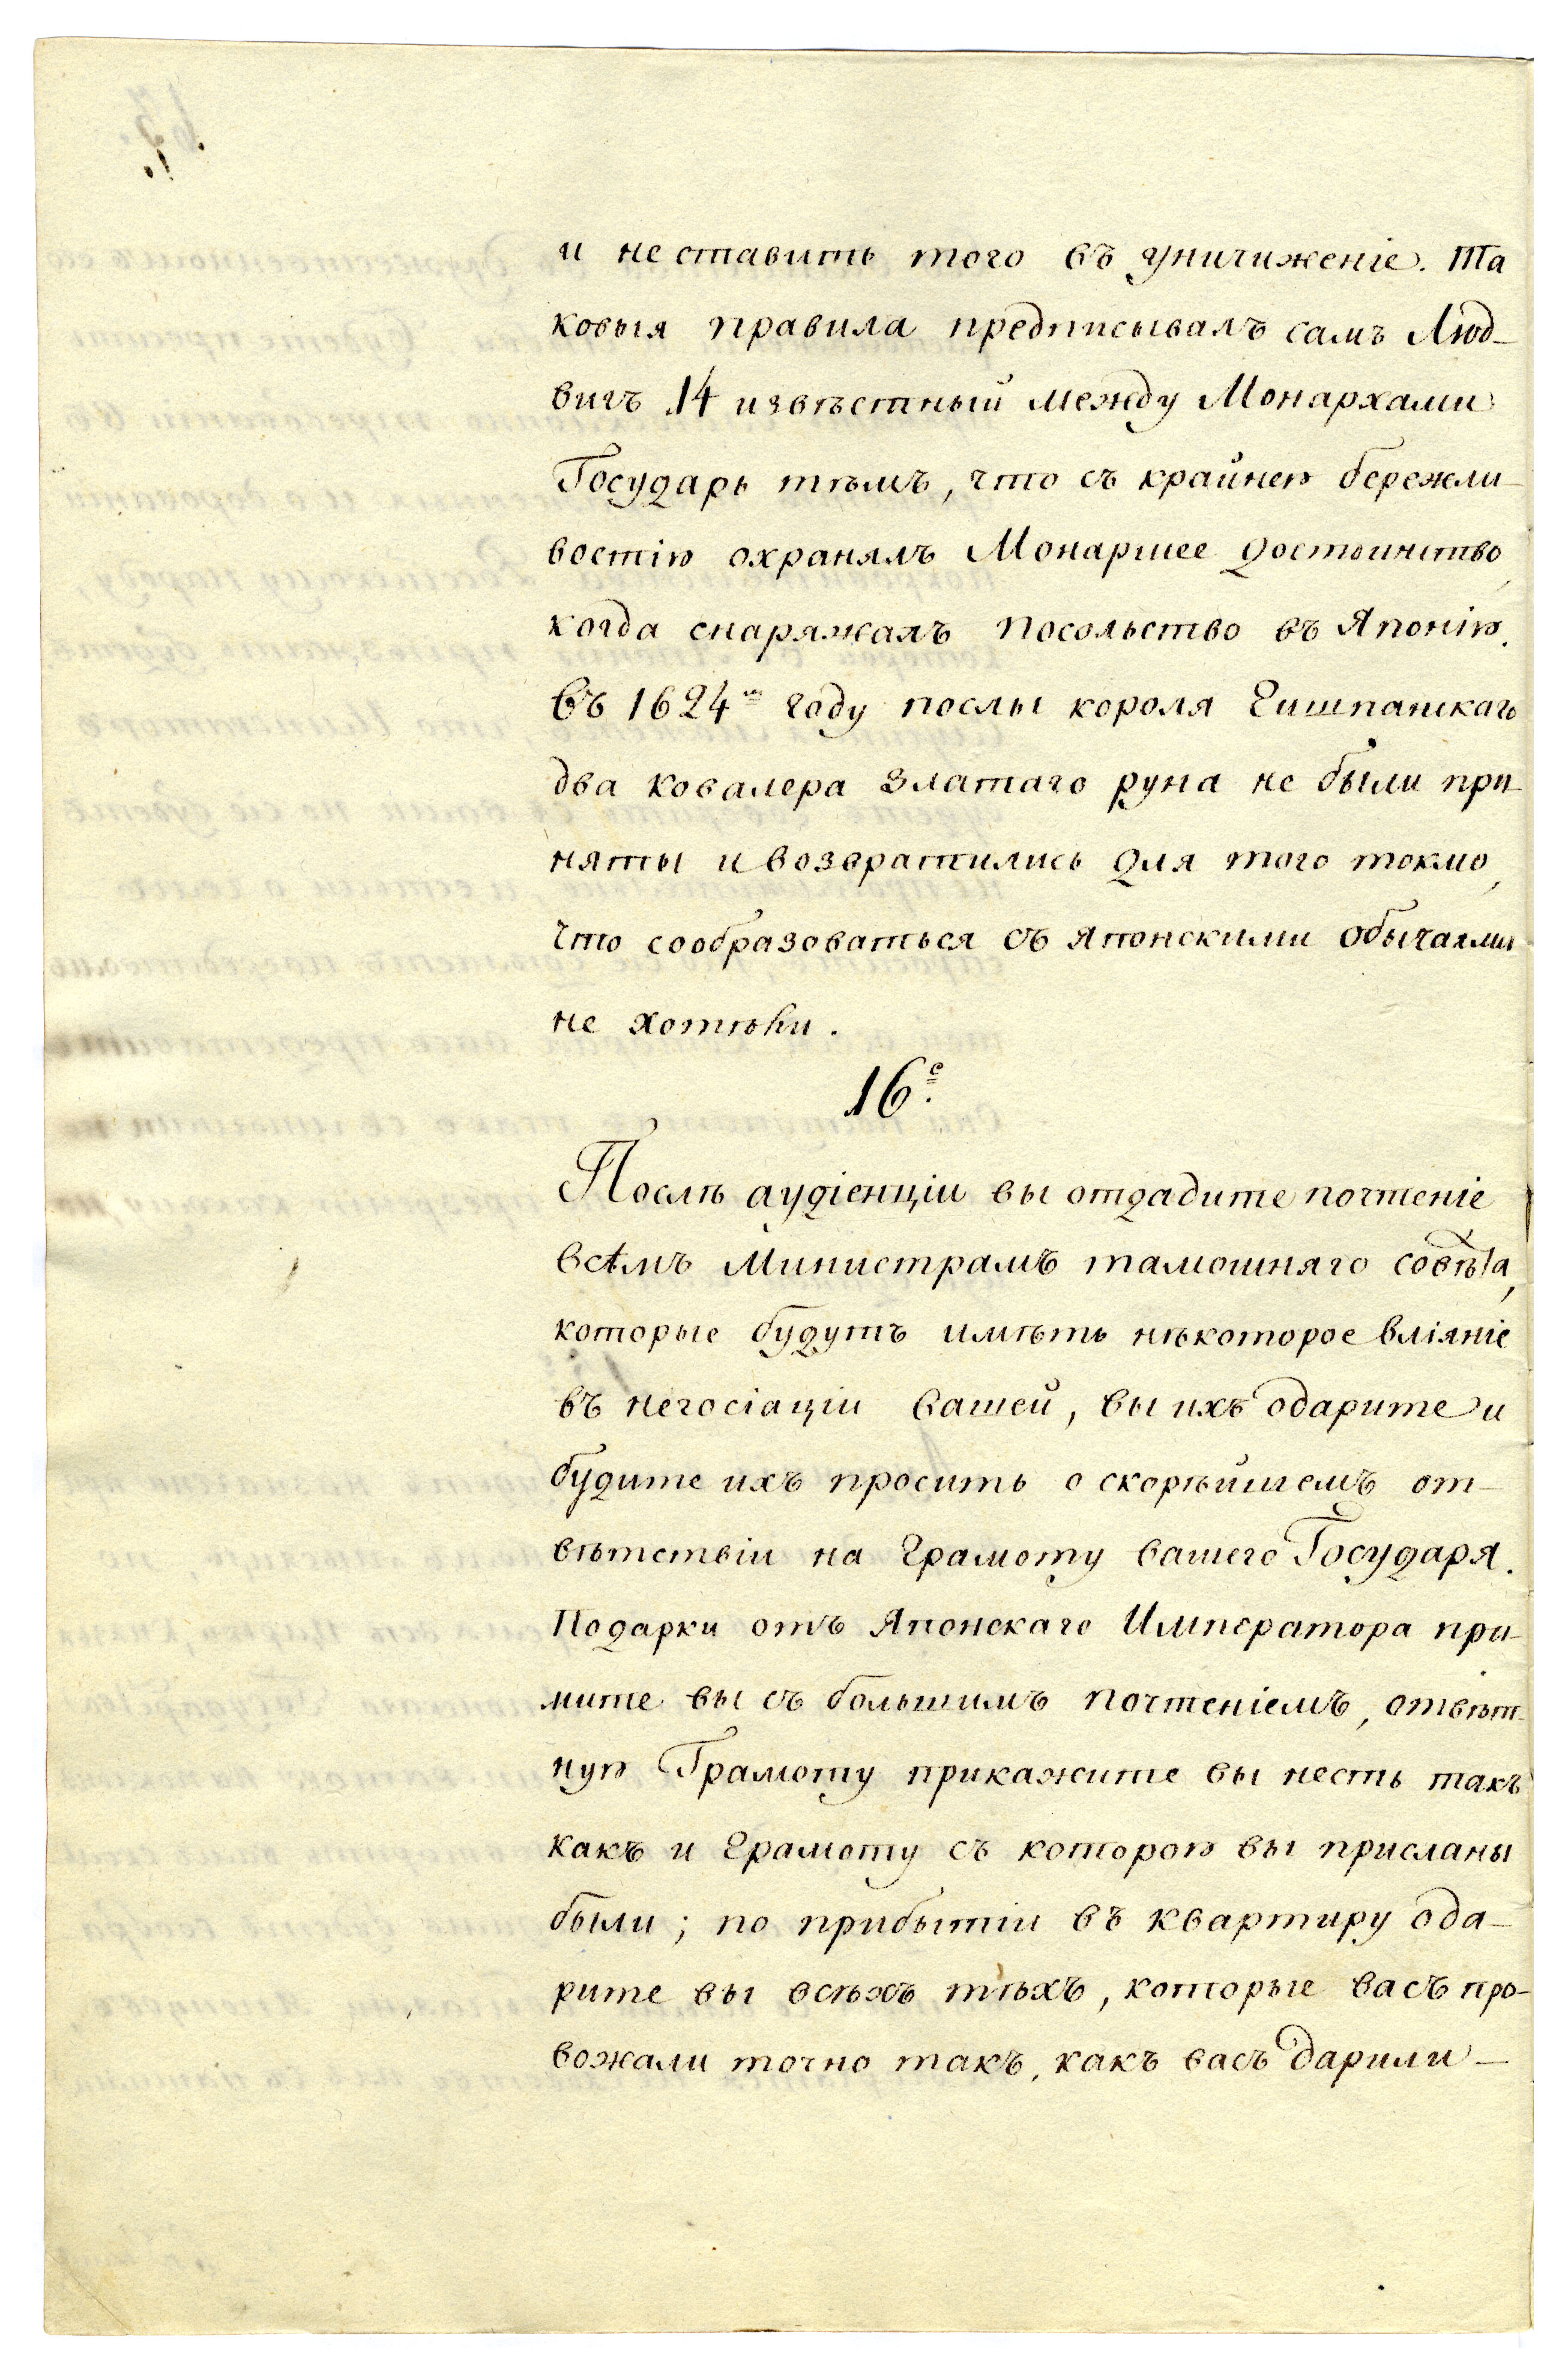 и не ставить того въ уничиженіе. Та
ковыя правила предписывалъ самъ Люд-
вигъ 14 извѣстный между Монархами
Государь тѣмъ, что съ крайнею бережли-
востію охранялъ Монаршее достоинство,
когда снаряжалъ посольство въ Японію.
Въ 1624м году послы короля Гишпанскаго
два ковалера Златаго руна не были при-
няты и возвратились для того токмо,
что сообразоваться съ японскими обычаями
не хотѣли.
16е.
Послѣ аудіенціи вы отдадите почтеніе
всѣмъ Министрамъ тамошняго совѣта,
которые будутъ имѣть нѣкоторое вліяніе
въ негосіаціи вашей, вы ихъ одарите и
будите ихъ просить о скорѣйшемъ от-
вѣтствіи на Грамоту вашего Государя.
Подарки отъ Японскаго Императора при-
мите вы съ большимъ почтеніемъ, отвѣт-
ную Грамоту прикажите вы несть такъ
какъ и Грамоту съ которою вы присланы
были; по прибытіи въ квартиру ода-
рите вы всѣхъ тѣхъ, которые васъ про-
вожали точно такъ, какъ васъ дарили-